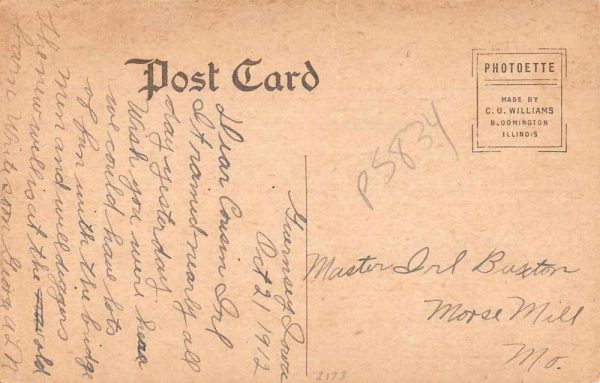 Post Card
PHOTOETTE
MADE BY
C. U. WILLIAMS
BLOOMINGTON
ILLINOIS
P5834
Guernsey Iowa
Oct 21 1912
Dear Cousin Irl
It rained nearly all
day yesterday
Wish you were here
we could have lots
of fun with the bridge
men and well diggers
the new well is at the old
barn Write soon
Master Irl Buxton
Morse Mill
Mo.
2173